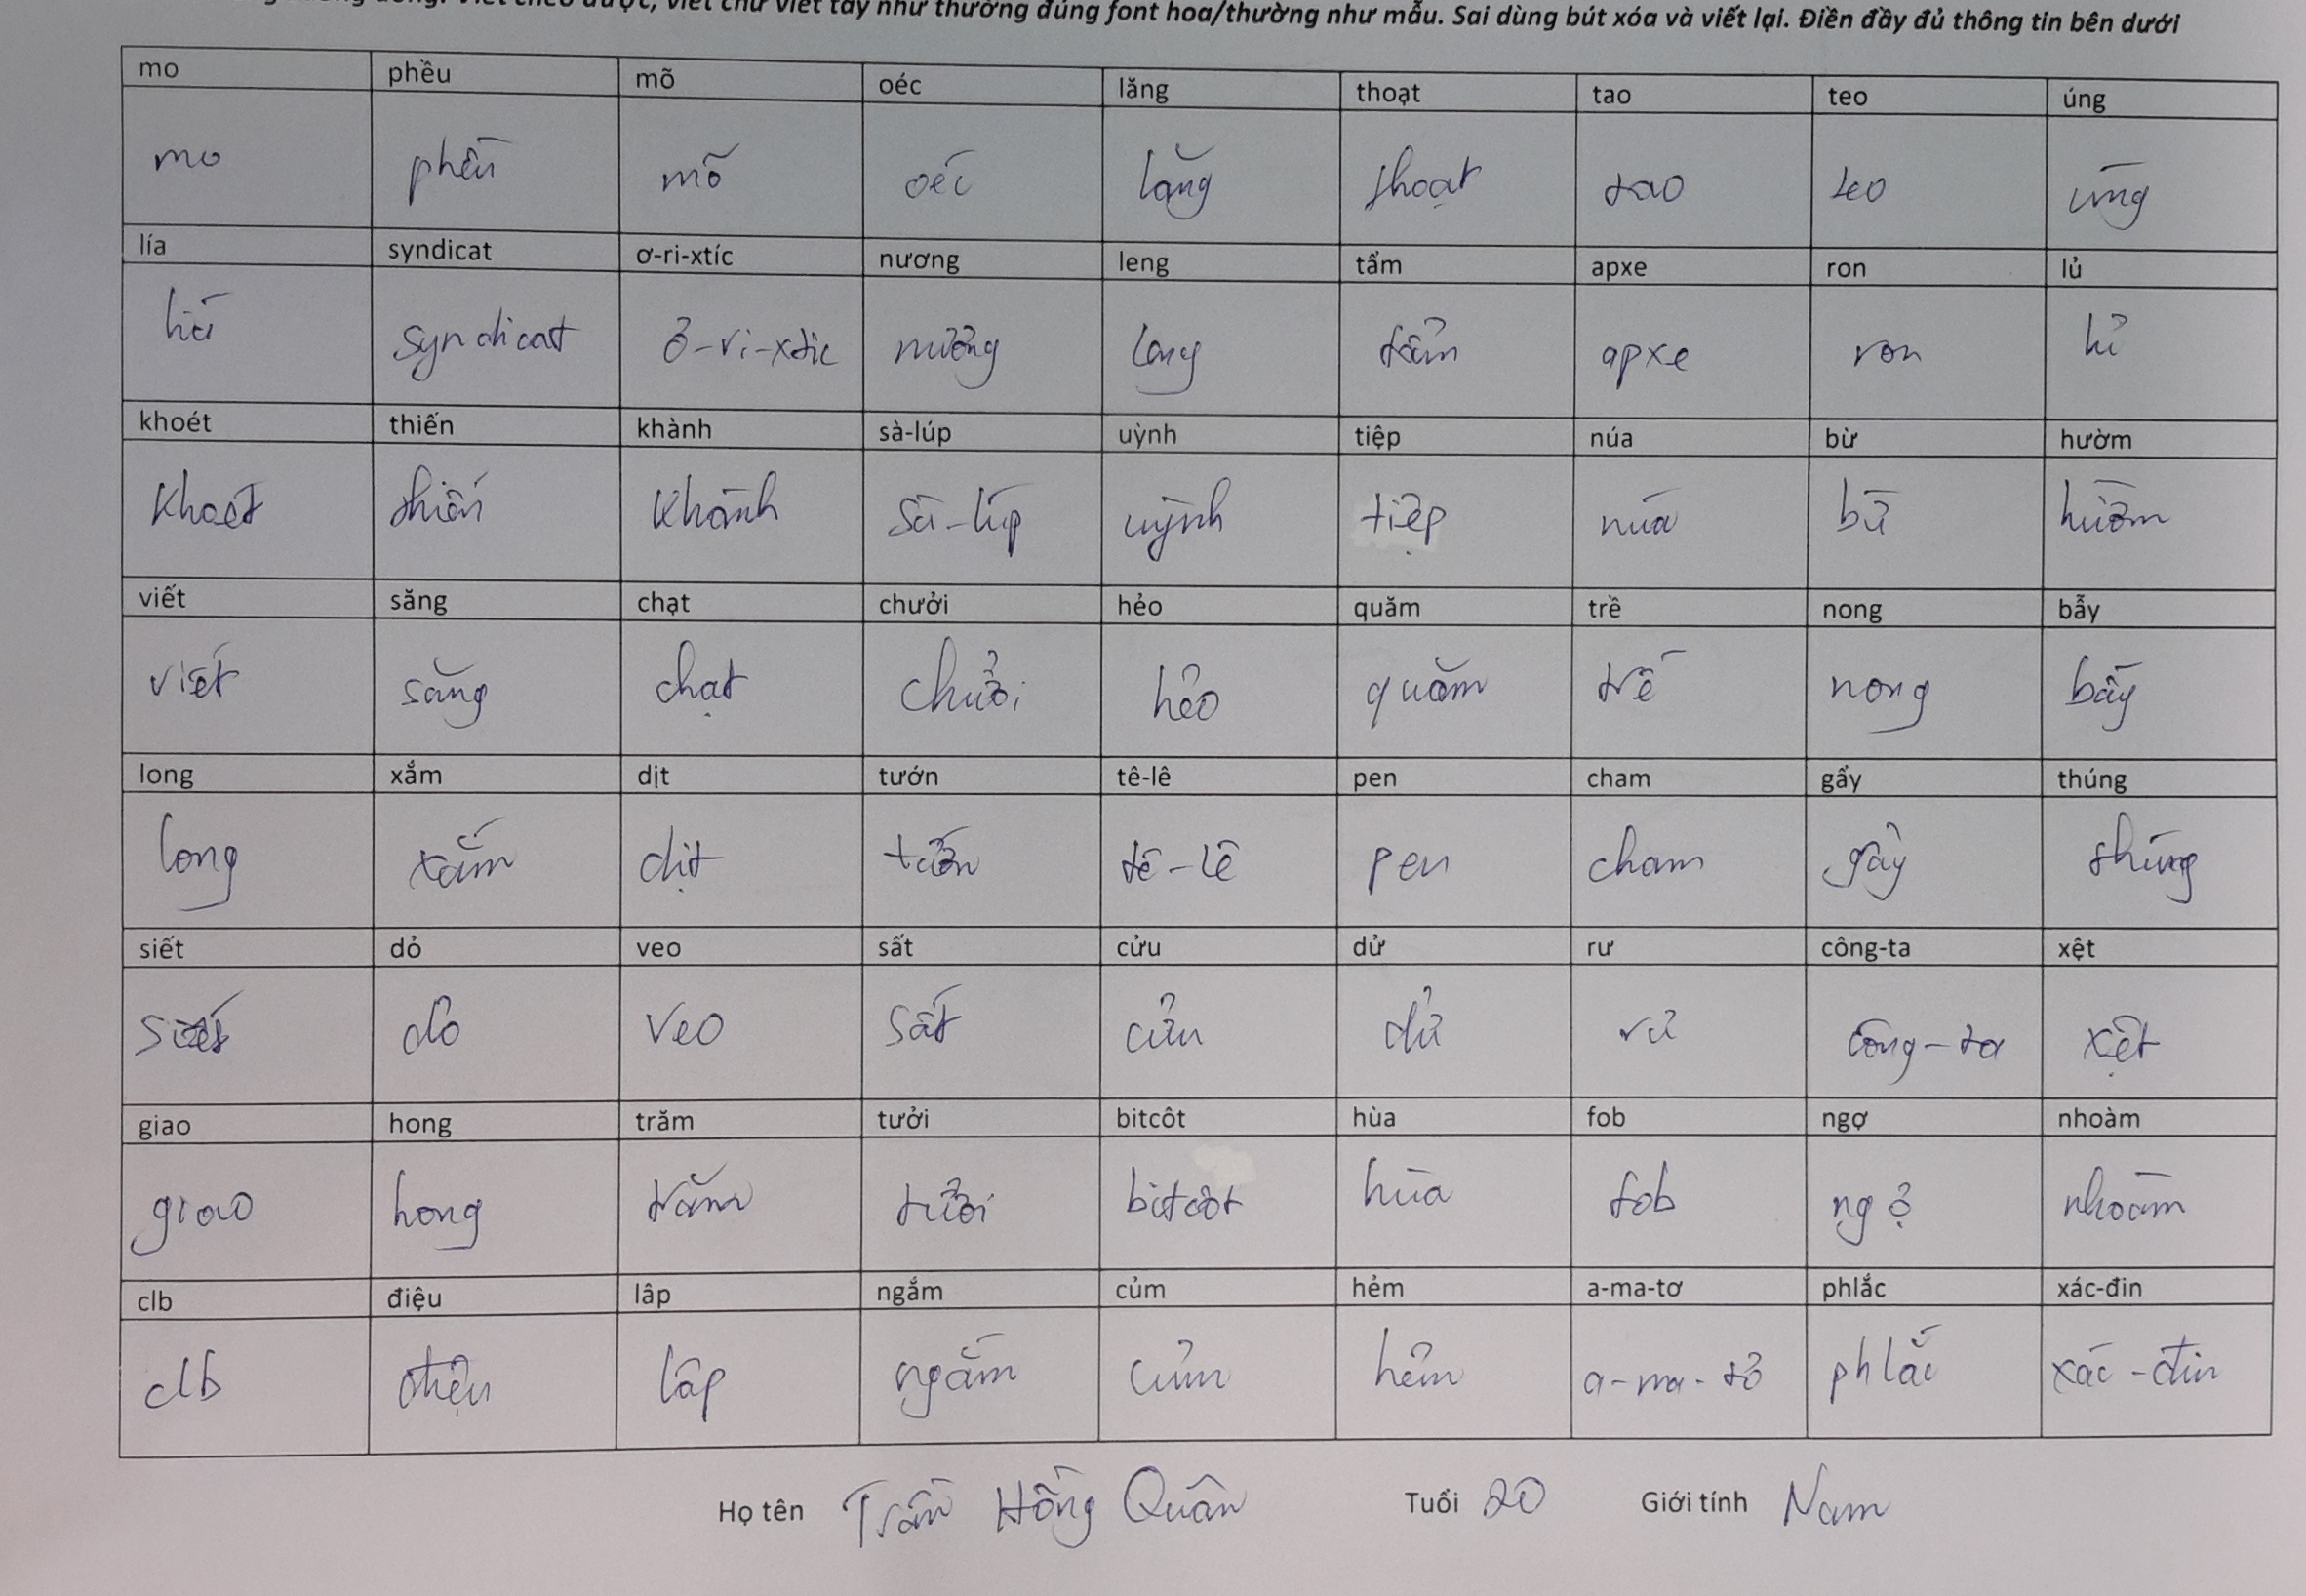 viết chữ viết tay như thường đúng font hoa/thường như mẫu. Sai dùng bút xóa và viết lại. Điền đầy đủ thông tin bên dưới
mo phều mõ oéc lăng thoạt tao teo úng
mo phều mõ oéc lăng thoạt tao teo úng
lía syndicat ơ-ri-xtíc nương leng tẩm apxe ron lủ
lía syndicat ơ-ri-xtíc nương leng tẩm apxe ron lủ
khoét thiến khành sà-lúp uỳnh tiệp núa bừ hườm
khoét thiến khành sà-lúp uỳnh tiệp núa bừ hườm
viết săng chạt chưởi hẻo quăm trề nong bẫy
viết săng chạt chưởi hẻo quăm trề nong bẫy
long xắm dịt tướn tê-lê pen cham gẩy thúng
long xắm dịt tướn tê-lê pen cham gẩy thúng
siết dỏ veo sất cửu dử rư công-ta xệt
siết dỏ veo sất cửu dử rư công-ta xệt
giao hong trăm tưởi bitcôt hùa fob ngợ nhoàm
giao hong trăm tưởi bitcôt hùa fob ngợ nhoàm
clb điệu lâp ngắm củm hẻm a-ma-tơ phlắc xác-đin
clb điệu lâp ngắm củm hẻm a-ma-tơ phlắc xác-đin
Họ tên Trần Hồng Quân Tuổi 20 Giới tính Nam